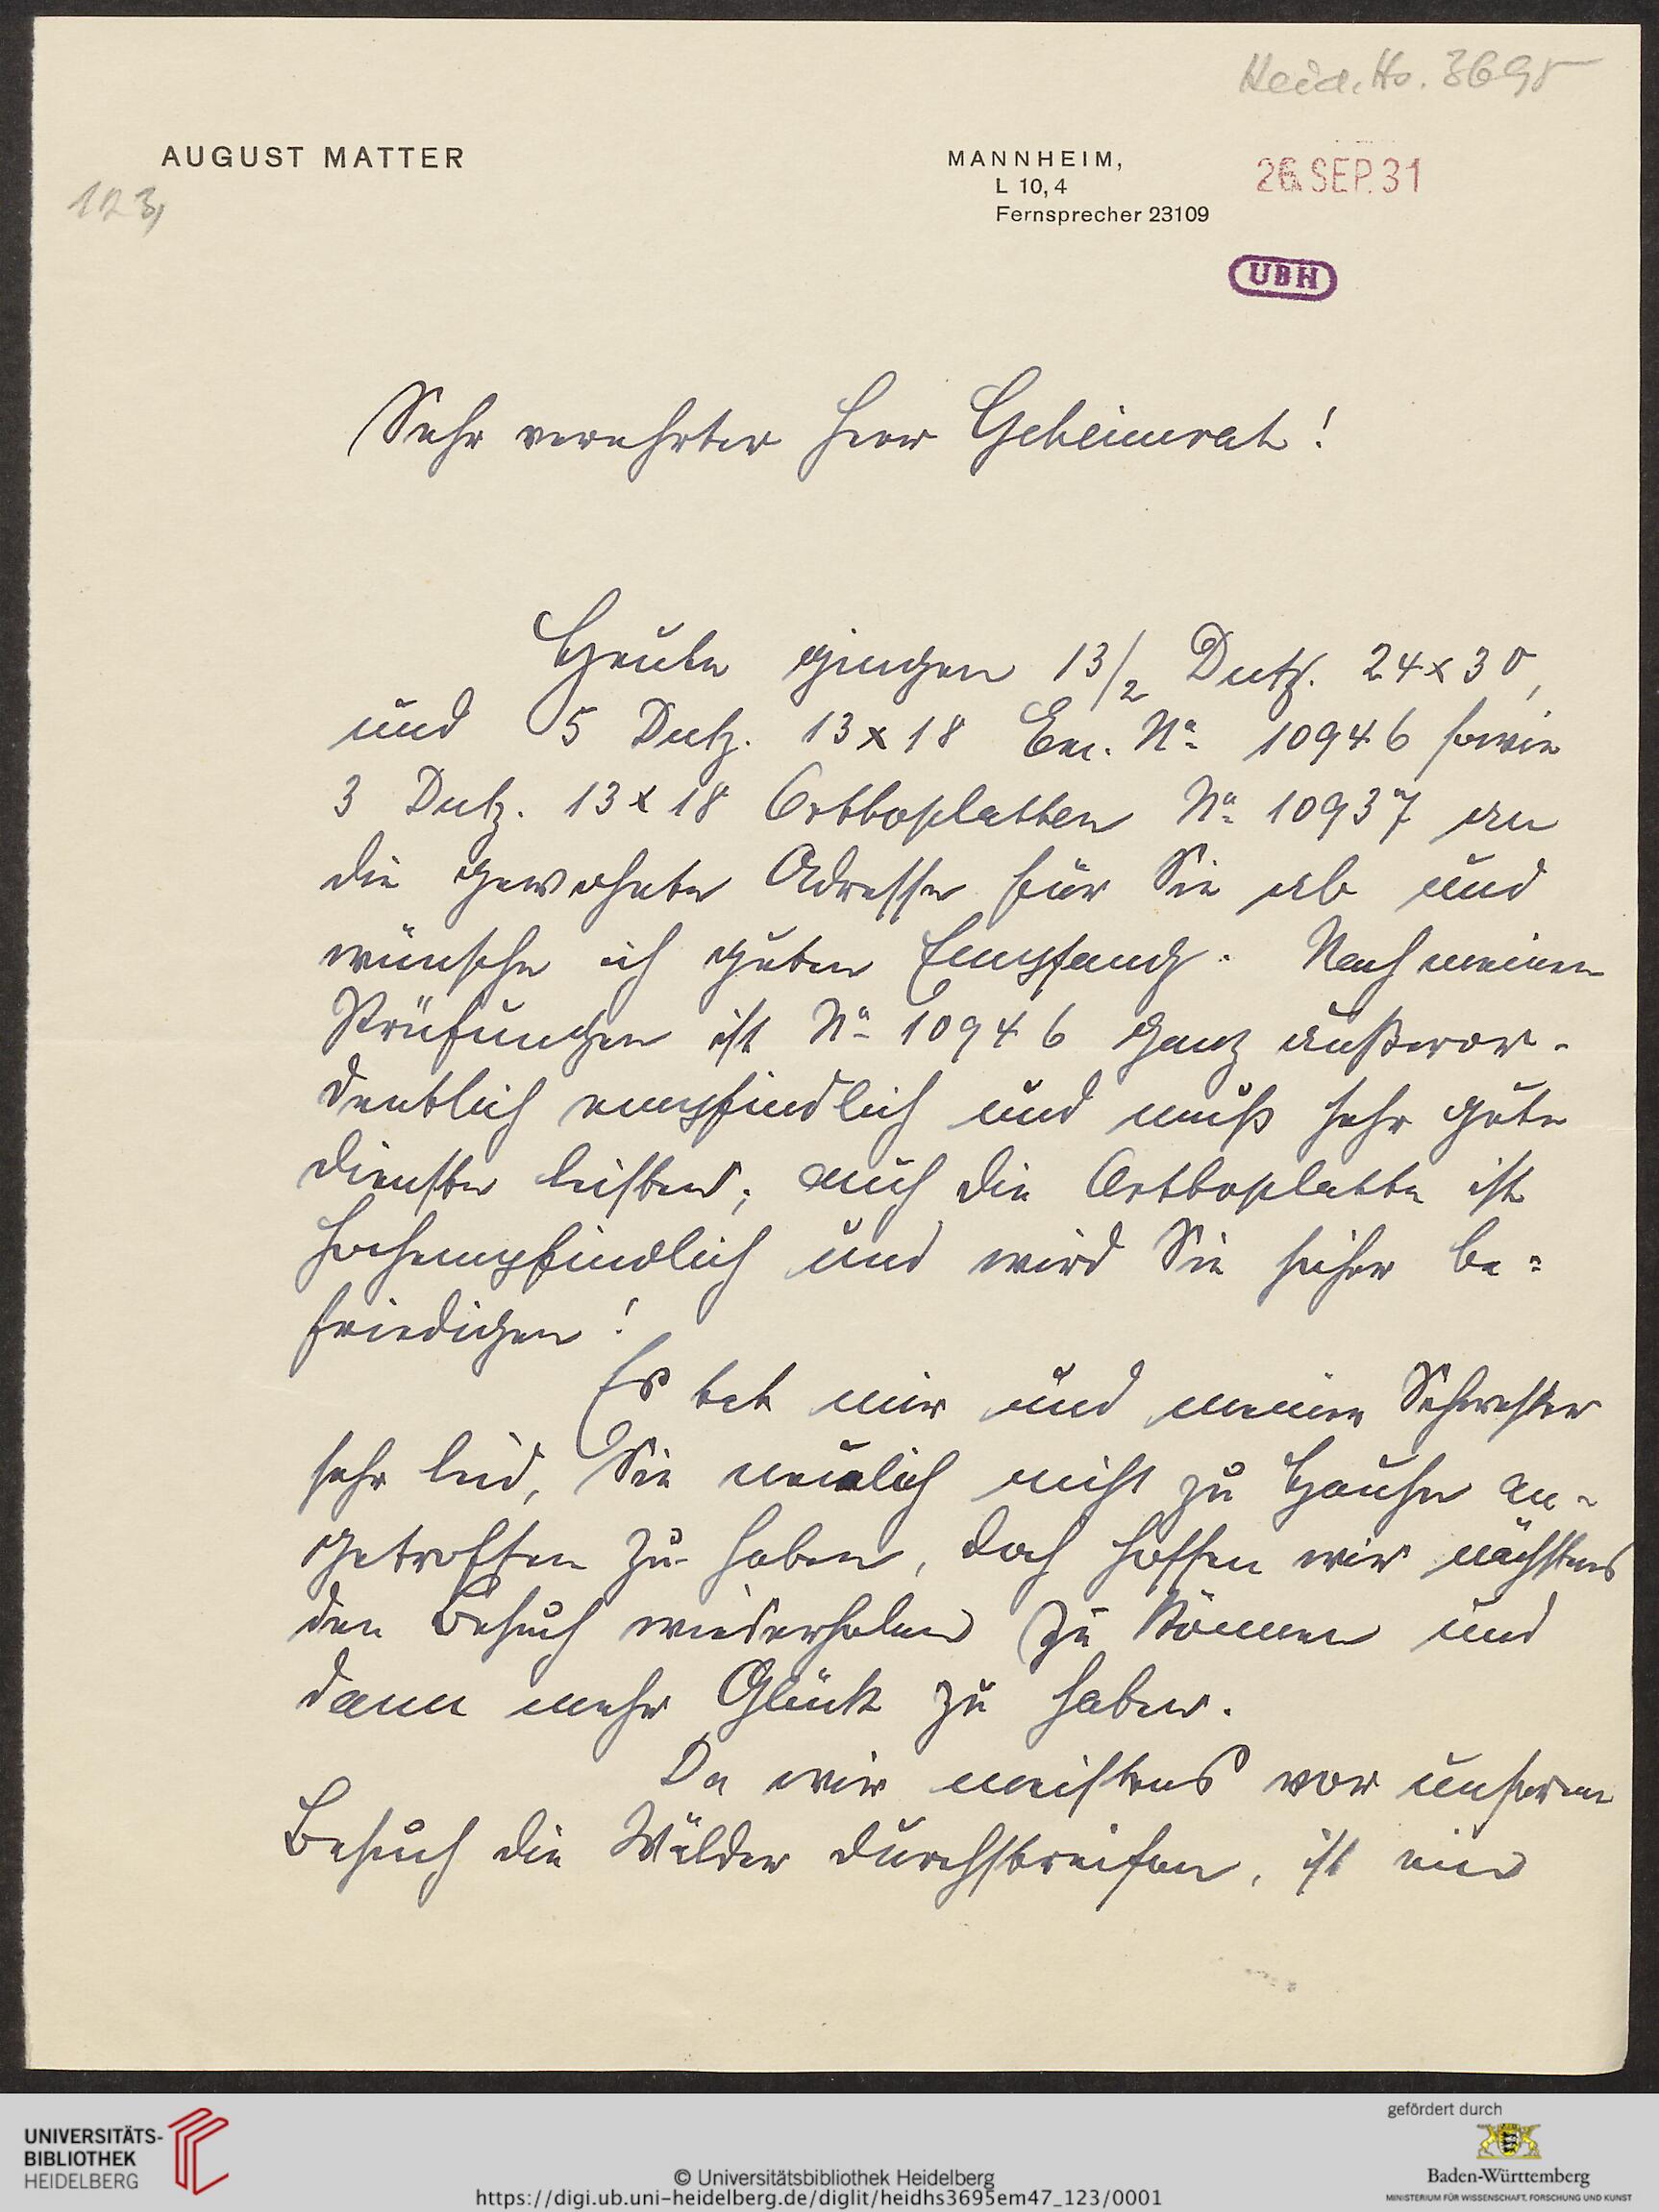 Heid. Hs. 3695
AUGUST MATTER
MANNHEIM,
L 10, 4
Fernsprecher 23109
26. SEP. 31
123,
UBH
Sehr verehrter Herr Geheimrat!
Heute gingen 13/2 Dutz. 24x30,
und 5 Dutz. 13x18 Em. No 10946 sowie
3 Dutz. 13x18 Orthoplatten No 10937 an
die gewohnte Adresse für Sie ab und
wünsche ich guten Empfang. Nach meinen
Prüfungen ist No 10946 ganz außeror-
dentlich empfindlich und muß sehr gute
Dienste leisten; auch die Orthoplatte ist
hochempfindlich und wird Sie sicher be-
friedigen!
Es tat mir und meiner Schwester
sehr leid, Sie neulich nicht zu Hause an-
getroffen zu haben, doch hoffen wir nächstens
den Besuch wiederholen zu können und
dann mehr Glück zu haben.
Da wir meistens vor unserem
Besuch die Wälder durchstreifen, ist ein
UNIVERSITÄTS-
BIBLIOTHEK
HEIDELBERG
© Universitätsbibliothek Heidelberg
https://digi.ub.uni-heidelberg.de/diglit/heidhs3695em47_123/0001
gefördert durch
Baden-Württemberg
MINISTERIUM FÜR WISSENSCHAFT, FORSCHUNG UND KUNST